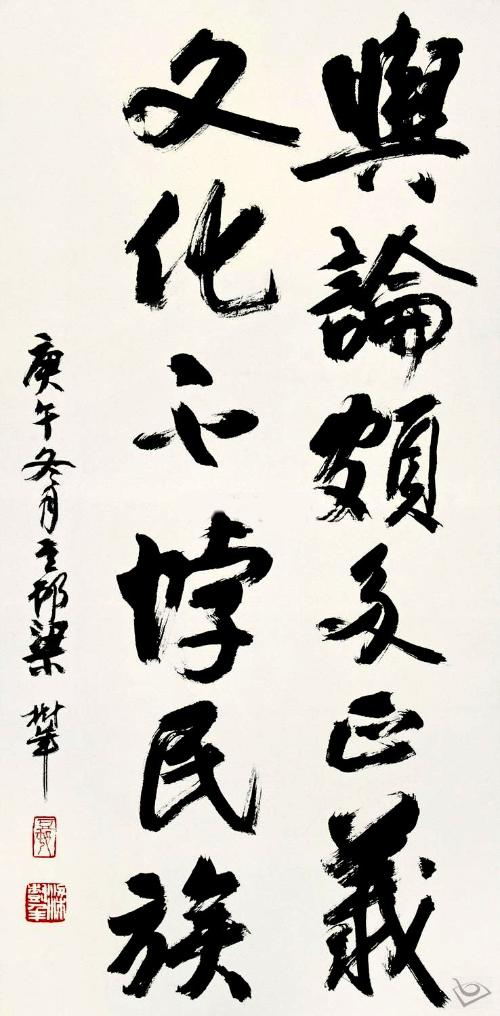 輿論頗多正義
文化不悖民族
庚午冬月豆邨梁樹年